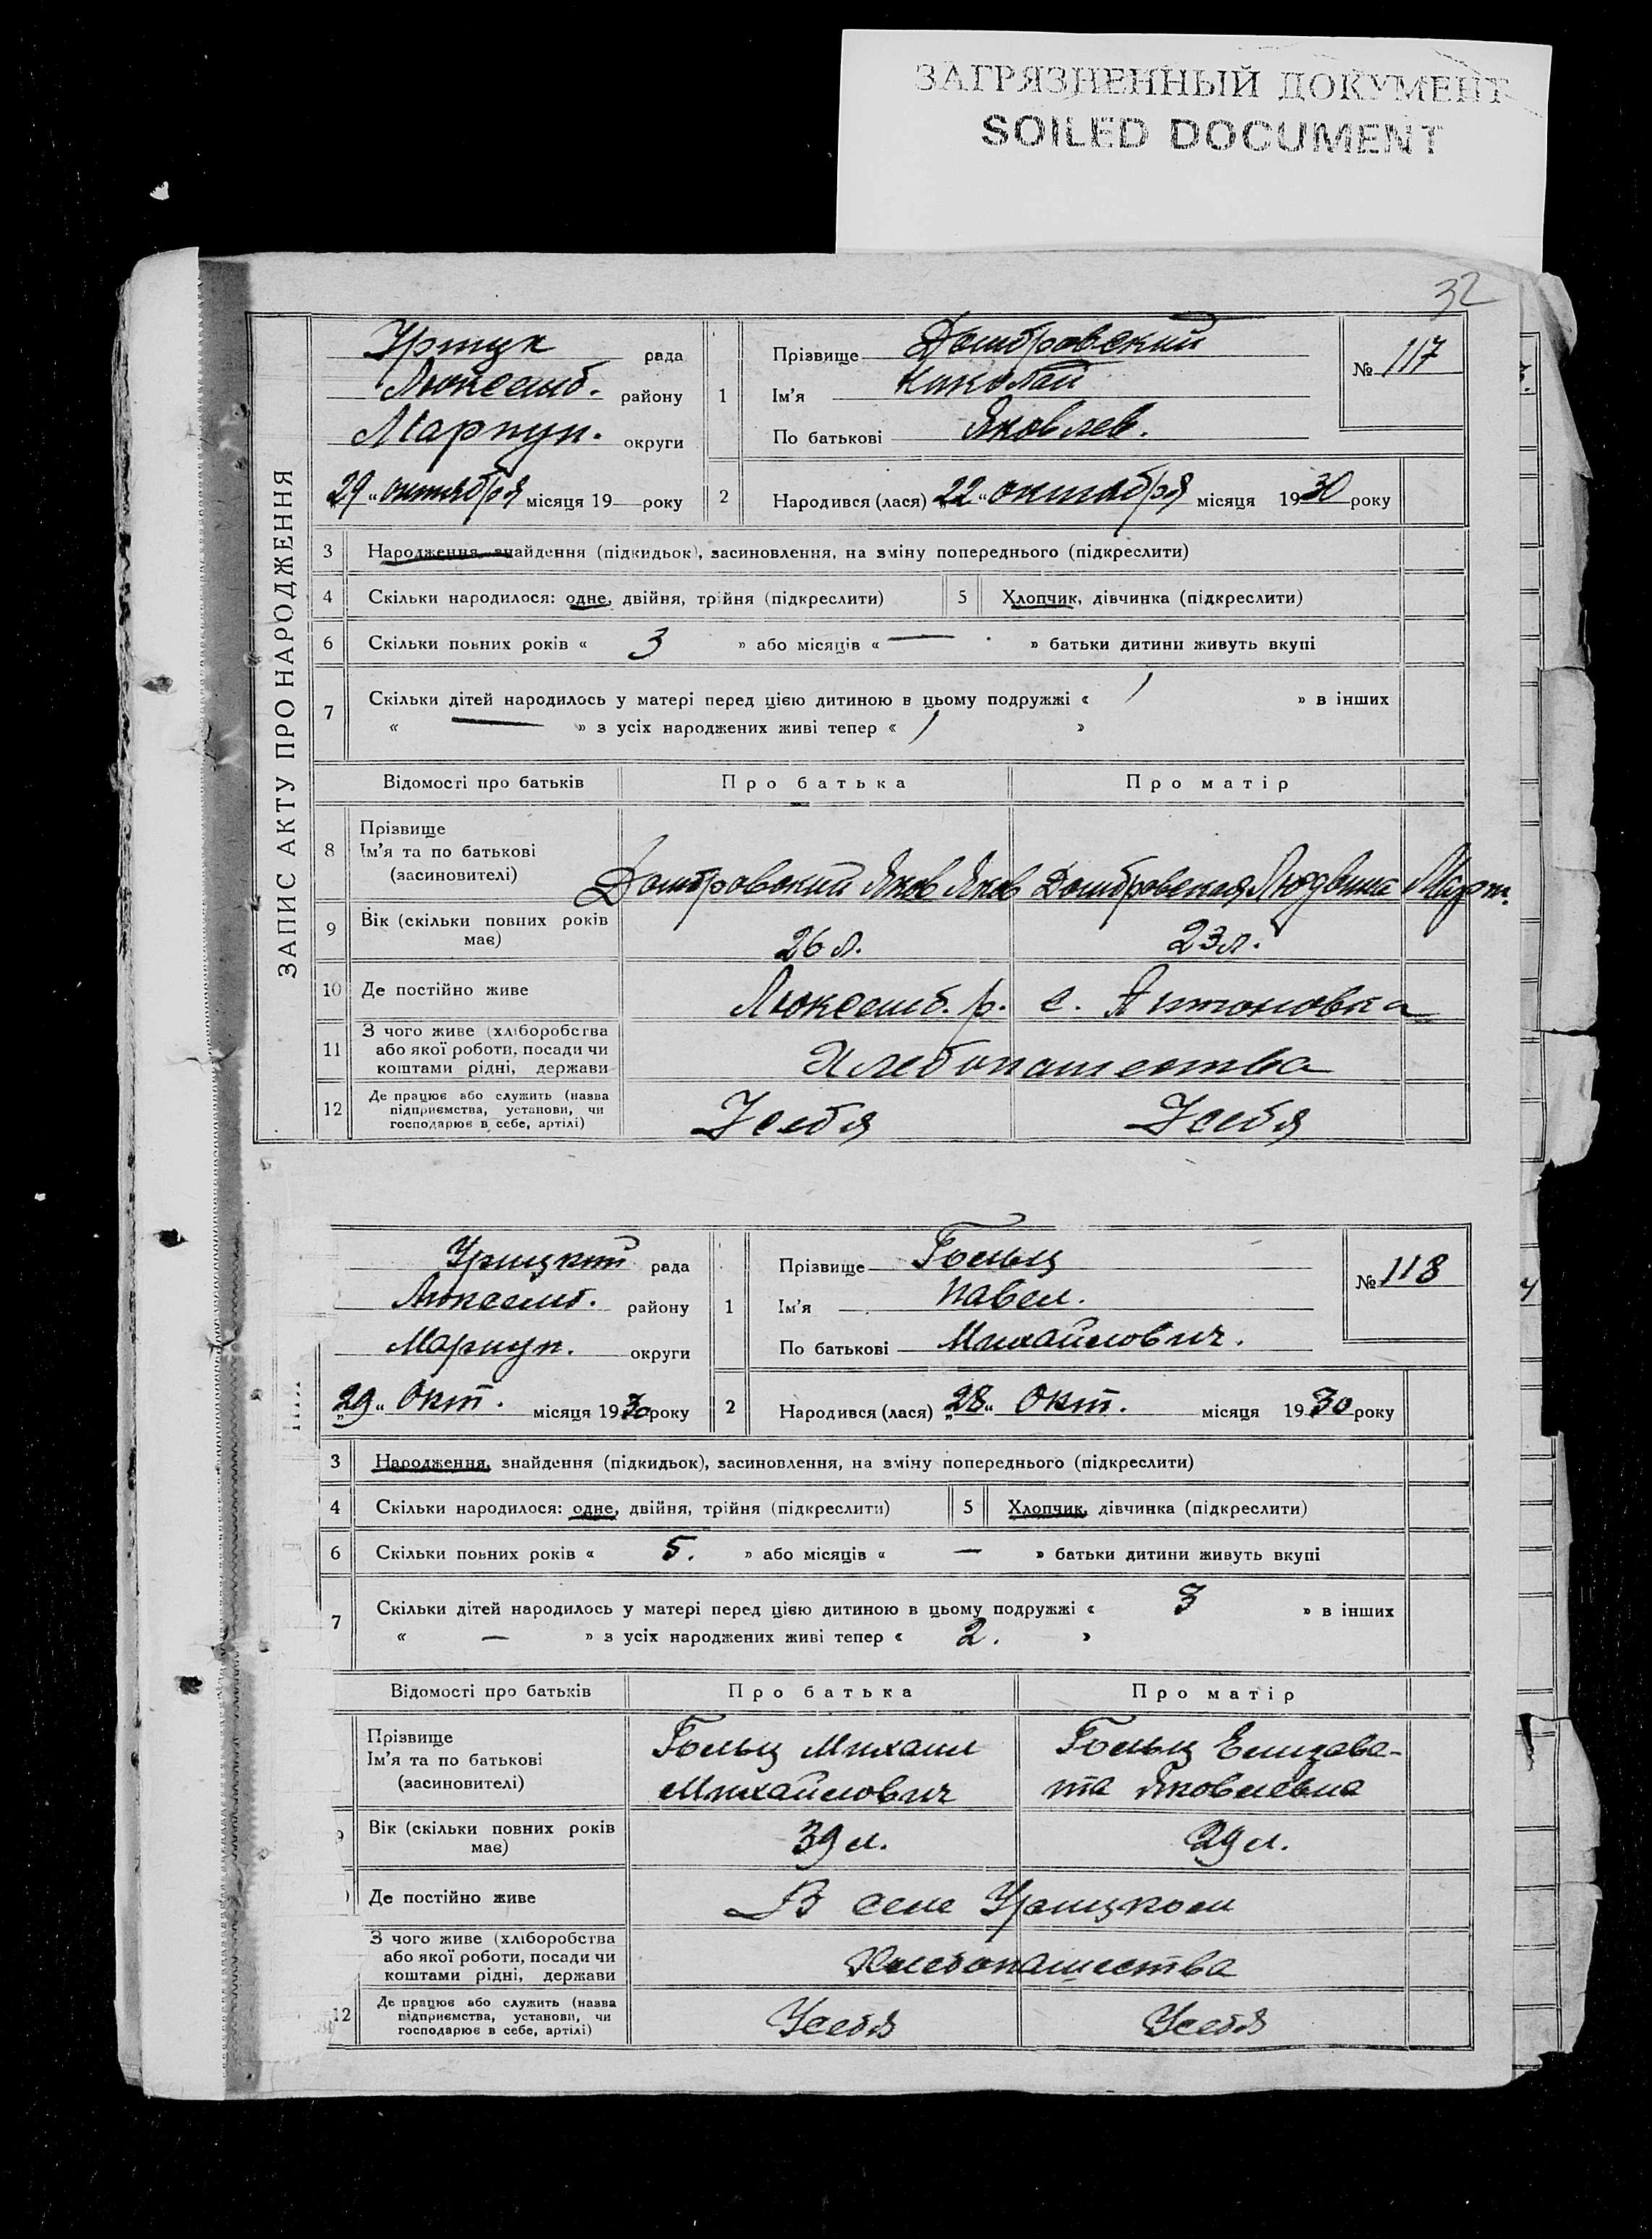 ЗАГРЯЗНЕННЫЙ ДОКУМЕНТ
SOILED DOCUMENT
32
ЗАПИС АКТУ ПРО НАРОДЖЕННЯ
Урицк рада
Люксемб. району
Мариуп. округи
29 „ октября місяця 19 року
1 Прізвище Домбровский
Ім'я Николай
По батькові Яковлев.
№ 117
2 Народився (лася) „22“ октября місяця 1930 року
3 Народження, знайдення (підкидьок), засиновлення, на зміну попереднього (підкреслити)
4 Скільки народилося: одне, двійня, трійня (підкреслити) 5 Хлопчик, дівчинка (підкреслити)
6 Скільки повних років « 3 » або місяців « — » батьки дитини живуть вкупі
7 Скільки дітей народилось у матері перед цією дитиною в цьому подружжі « 1 » в інших
« — » з усіх народжених живі тепер « 1 »
Відомості про батьків Про батька Про матір
8 Прізвище
Ім'я та по батькові
(засиновителі)
Домбровский Яков Яков Домбровская Людвика Март.
9 Вік (скільки повних років має) 26 л. 23 л.
10 Де постійно живе Люксемб. р. с. Антоновка
11 З чого живе (хліборобства
або якої роботи, посади чи
коштами рідні, держави
Хлебопашества
12 Де працює або служить (назва
підприємства, установи, чи
господарює в себе, артілі)
У себя У себя
Урицкой рада
Люксемб. району
Мариуп. округи
„29“ Окт. місяця 1930 року
1 Прізвище Гольц
Ім'я Павел.
По батькові Михайлович.
№ 118
2 Народився (лася) „28“ Окт. місяця 1930 року
3 Народження, знайдення (підкидьок), засиновлення, на зміну попереднього (підкреслити)
4 Скільки народилося: одне, двійня, трійня (підкреслити) 5 Хлопчик, дівчинка (підкреслити)
6 Скільки повних років « 5. » або місяців « — » батьки дитини живуть вкупі
7 Скільки дітей народилось у матері перед цією дитиною в цьому подружжі « 3 » в інших
« — » з усіх народжених живі тепер « 2. »
Відомості про батьків Про батька Про матір
Прізвище
Ім'я та по батькові
(засиновителі)
Гольц Михаил Гольц Елизаве-
Михайлович та Яковлевна
9 Вік (скільки повних років має) 39 л. 29 л.
Де постійно живе В селе Урицком
З чого живе (хліборобства
або якої роботи, посади чи
коштами рідні, держави
Хлебопашества
12 Де працює або служить (назва
підприємства, установи, чи
господарює в себе, артілі)
У себя У себя